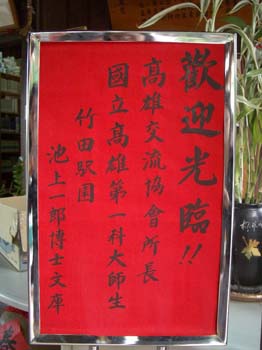 歡迎光臨!!
高雄交流協會所長
國立高雄第一科大師生
竹田駅園
池上一郎博士文庫